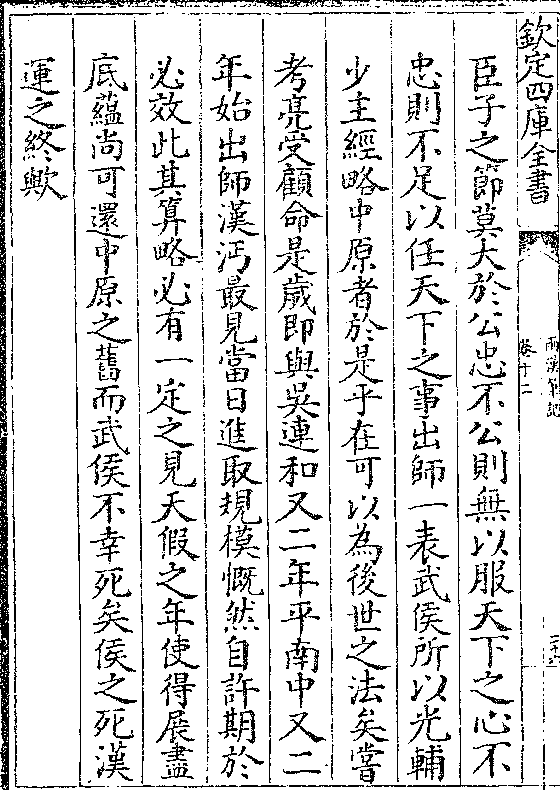 欽定四庫全書
卷十二
臣子之節莫大於公忠不公則無以服天下之心不
忠則不足以任天下之事出師一表武侯所以光輔
少主經略中原者於是乎在可以為後世之法矣嘗
考亮受顧命是歲即與吳連和又二年平南中又二
年始出師漢沔最見當日進取規模慨然自許期於
必效此其算略必有一定之見天假之年使得展盡
底蘊尚可還中原之舊而武侯不幸死矣侯之死漢
運之終歟